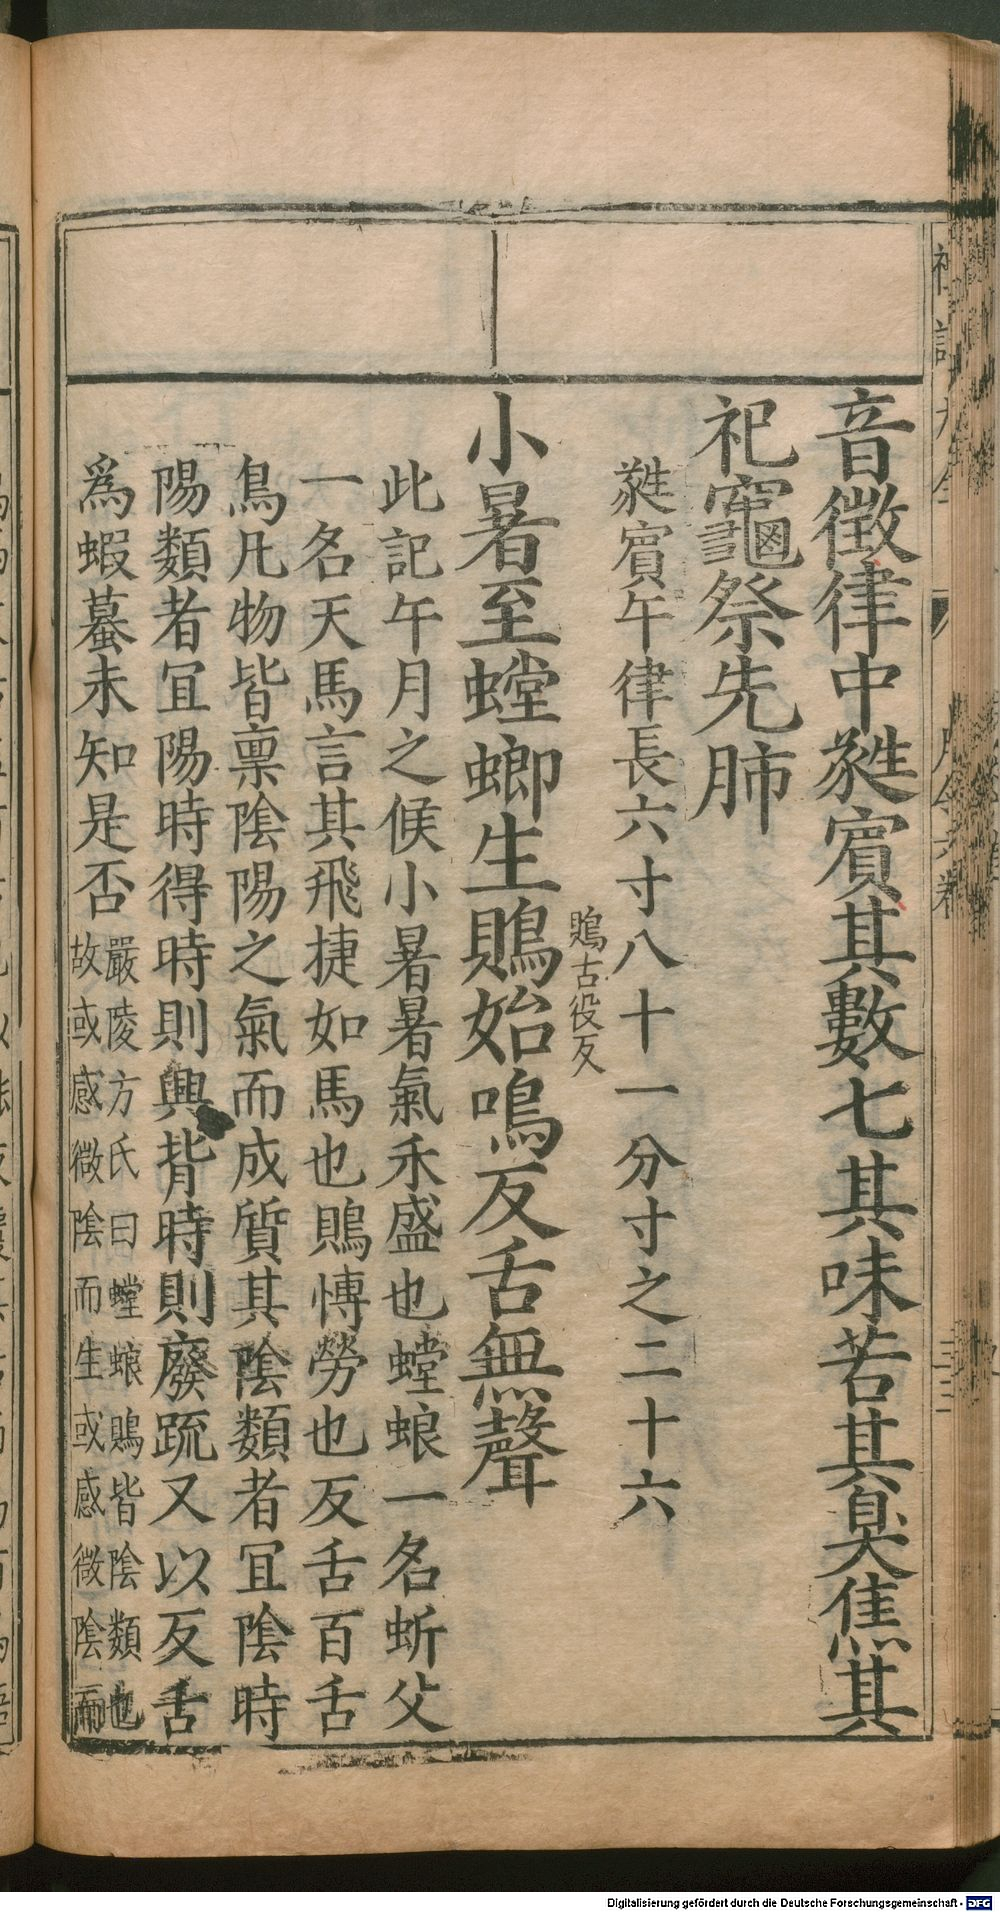 音徵律中蕤賓其數七其味苦其臭焦其
祀竈祭先肺
蕤賓午律長六寸八十一分寸之二十六
鵙古役反
小暑至螳螂生鵙始鳴反舌無聲
此記午月之候小暑暑氣未盛也螳蜋一名蚚父
一名天馬言其飛捷如馬也鵙慱勞也反舌百舌
鳥凡物皆禀陰陽之氣而成質其陰類者宜陰時
陽類者宜陽時得時則興背時則廢疏又以反舌
爲蝦蟇未知是否
嚴陵方氏曰螳蜋鵙皆陰類也
故或感微陰而生或感微陰而
Digitalisierung gefördert durch die Deutsche Forschungsgemeinschaft - DFG